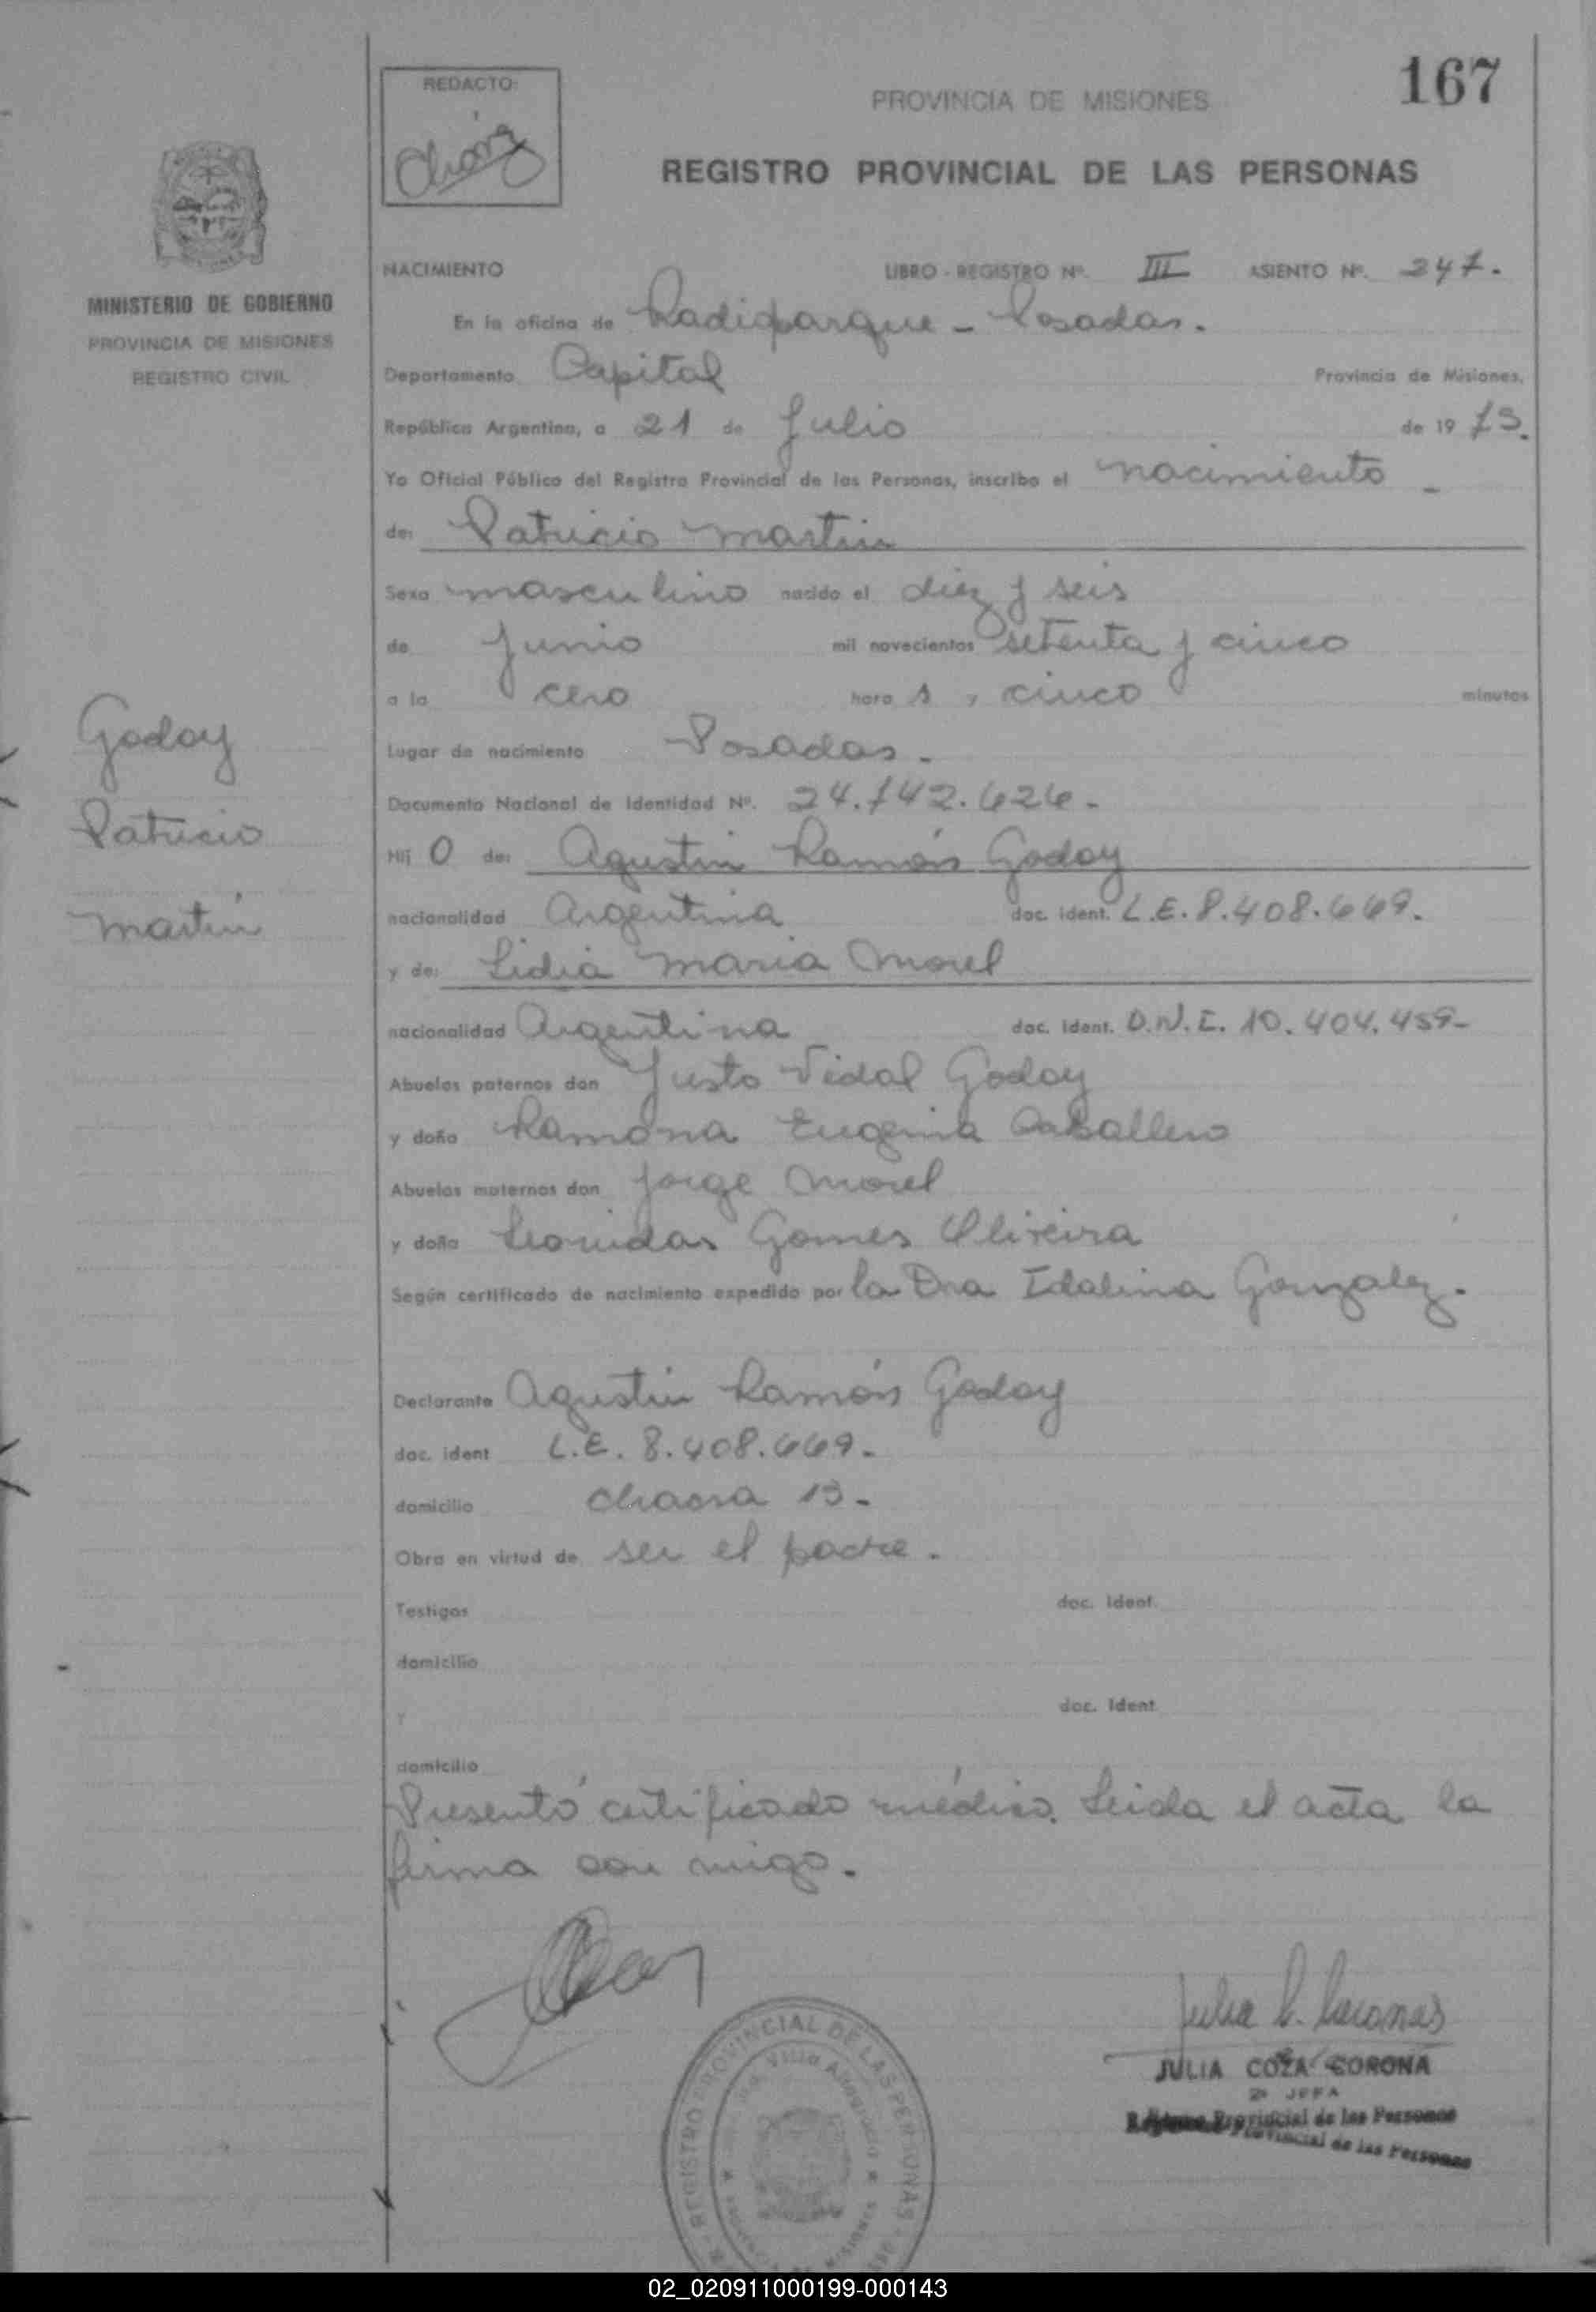 167
REDACTO:
PROVINCIA DE MISIONES
REGISTRO PROVINCIAL DE LAS PERSONAS
MINISTERIO DE GOBIERNO
PROVINCIA DE MISIONES
REGISTRO CIVIL
NACIMIENTO LIBRO - REGISTRO Nº. III ASIENTO Nº. 247.
En la oficina de Radiparque - Posadas.
Departamento Capital Provincia de Misiones,
República Argentina, a 21 de Julio de 19 75.
Yo Oficial Público del Registro Provincial de las Personas, inscribo el nacimiento
de: Patricio Martin
Sexo masculino nacido el diez y seis
de Junio mil novecientos setenta y cinco
a la cero hora s y cinco minutos
Lugar de nacimiento Posadas.
Godoy
Patricio
Martin
Documento Nacional de Identidad Nº. 24.142.626.-
Hij o de: Agustin Ramón Godoy
nacionalidad Argentina doc. ident. L.E. 8.408.669.
y de: Lidia Maria Morel
nacionalidad Argentina doc. ident. D.N.I. 10.404.459-
Abuelos paternos don Justo Vidal Godoy
y doña Ramona Eugenia Caballero
Abuelos maternos don Jorge Morel
y doña Leonidas Gomes Oliveira
Según certificado de nacimiento expedido por la Dra Idalina Gonzalez.
Declarante Agustin Ramón Godoy
doc. ident L.E. 8.408.669.-
domicilio Chacra 13.-
Obra en virtud de ser el padre.
Testigos doc. ident.
domicilio
y doc. ident
domicilio
Presentó certificado médico. Leida el acta la
firma con migo.
REGISTRO PROVINCIAL DE LAS PERSONAS
JULIA COZA CORONA
2ª JEFA
Provincial de las Personas
Provincial de las Personas
02_020911000199-000143